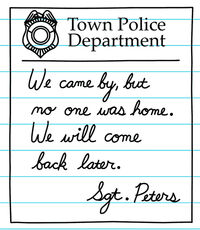 Town Police
Department
We came by, but
no one was home.
We will come
back later.
Sgt. Peters